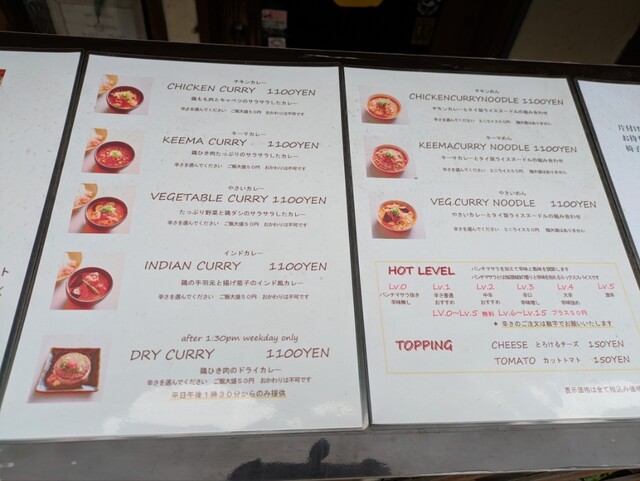 チキンカレー
CHICKEN CURRY 1100YEN
鶏もも肉とキャベツのサラサラしたカレー
辛さを選んでください ご飯大盛50円 おかわりは不可です
キーマカレー
KEEMA CURRY 1100YEN
鶏ひき肉たっぷりのサラサラしたカレー
辛さを選んでください ご飯大盛50円 おかわりは不可です
やさいカレー
VEGETABLE CURRY 1100YEN
たっぷり野菜と鶏ダシのサラサラしたカレー
辛さを選んでください ご飯大盛50円 おかわりは不可です
インドカレー
INDIAN CURRY 1100YEN
鶏の手羽元と揚げ茄子のインド風カレー
辛さを選んでください ご飯大盛50円 おかわりは不可です
after 1:30pm weekday only
DRY CURRY 1100YEN
鶏ひき肉のドライカレー
辛さを選んでください ご飯大盛50円 おかわりは不可です
平日午後1時30分からのみ提供
チキンめん
CHICKENCURRYNOODLE 1100YEN
チキンカレーとタイ版ライスヌードルの組み合わせ
辛さを選んでください ミニライス50円 麺大盛はありません
キーマめん
KEEMACURRY NOODLE 1100YEN
キーマカレーとタイ版ライスヌードルの組み合わせ
辛さを選んでください ミニライス50円 麺大盛はありません
やさいめん
VEG.CURRY NOODLE 1100YEN
やさいカレーとタイ版ライスヌードルの組み合わせ
辛さを選んでください ミニライス50円 麺大盛はありません
HOT LEVEL
パンチマサラを加えて辛味と風味を調整します
Lv.0 Lv.1 Lv.2 Lv.3 Lv.4 Lv.5
パンチマサラ抜き 辛さ普通 中辛 辛口 大辛 激辛
辛味無し おすすめ おすすめ 辛味増し 辛味強め
Lv.0~Lv.5 無料 Lv.6~Lv.15 プラス50円
★ 辛さのご注文は数字でお願いいたします
TOPPING
CHEESE とろけるチーズ 150YEN
TOMATO カットトマト 150YEN
表示価格は全て税込み価格